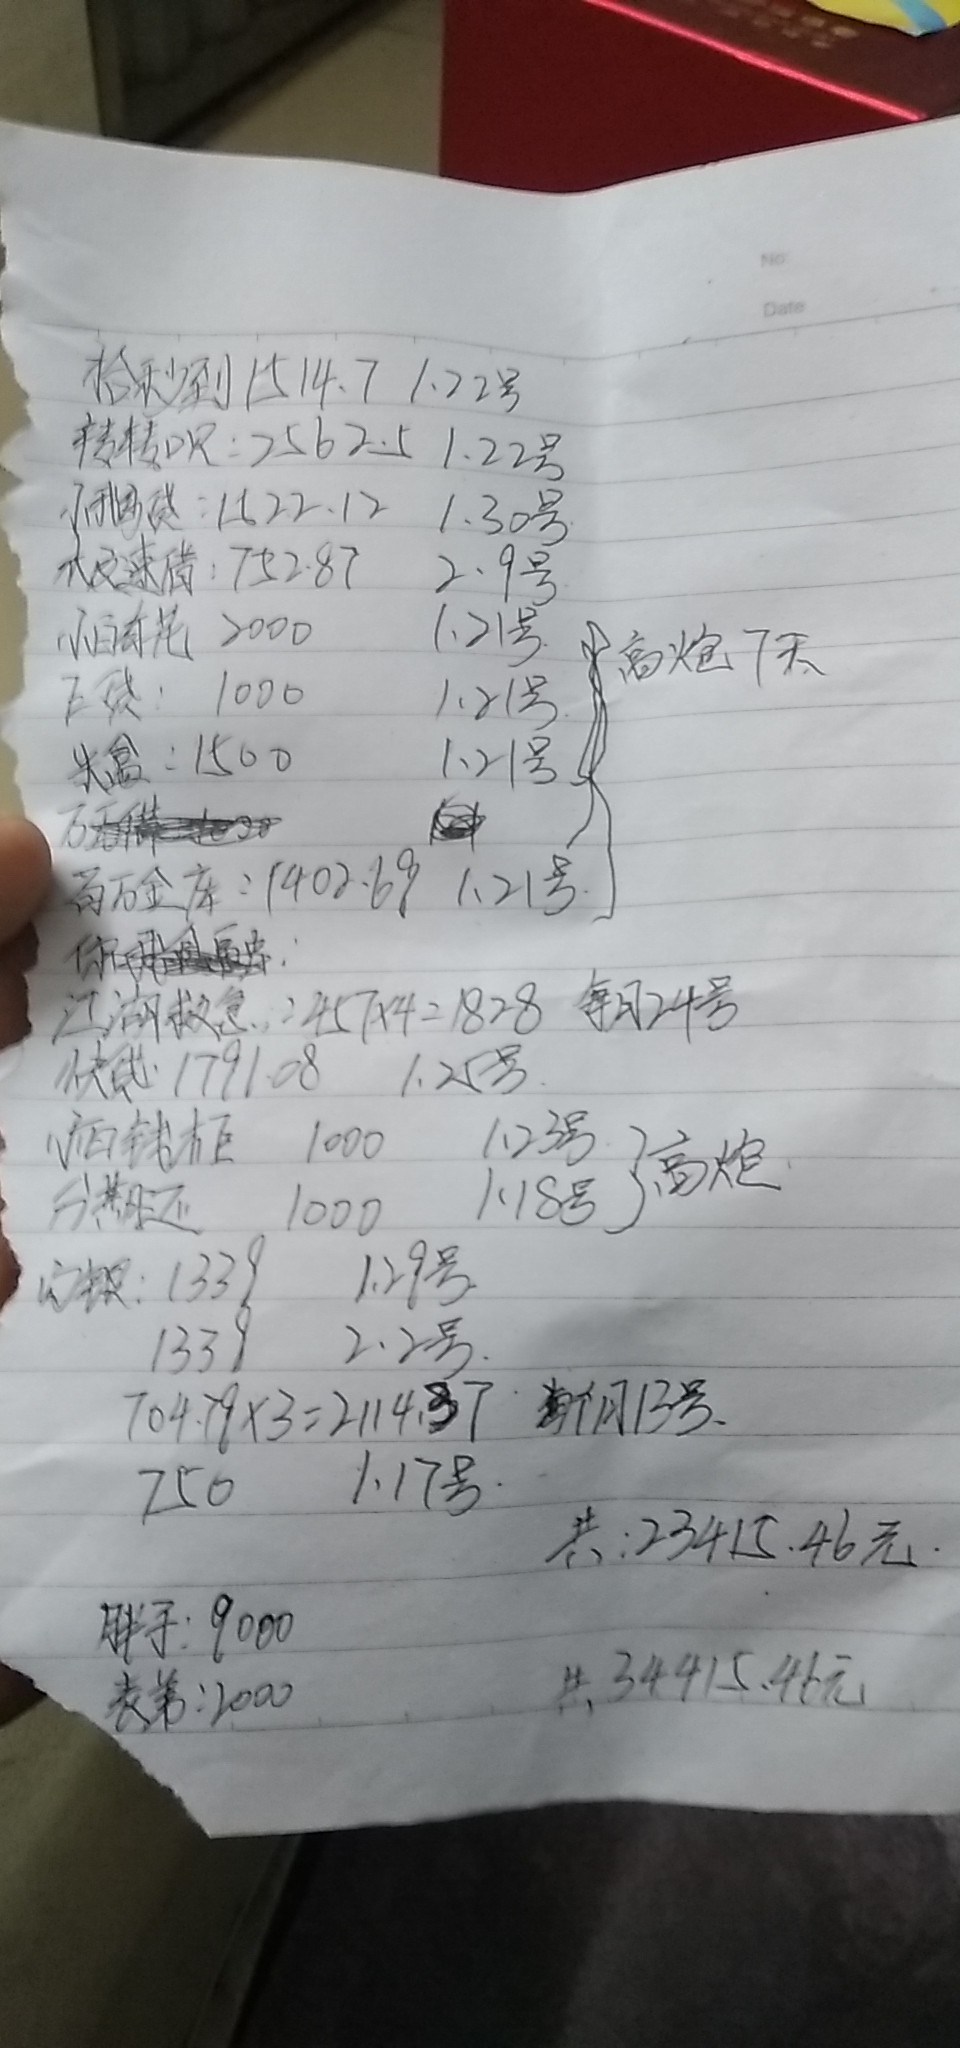 No
Date
拾秒到 1514.7 1.22号
转转口贝：2562.5 1.22号
：1522.12 1.30号
速借：752.87 2.9号
小白 2000 1.21号
高炮 7天
贷： 1000 1.21号
盒：1500 1.21号
百万金库：1402.69 1.21号
江湖救急：457×4=1828 每月24号
快贷：1791.08 1.25号
小白钱柜 1000 1.23号
高炮
1000 1.18号
：1339 1.29号
1339 2.2号
704.79×3=2114.37 每个月13号
750 1.17号
共：23415.46元
胖子：9000
表弟：2000 共 34415.46元